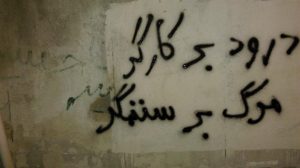 درود بر کارگر
مرگ بر ستمگر